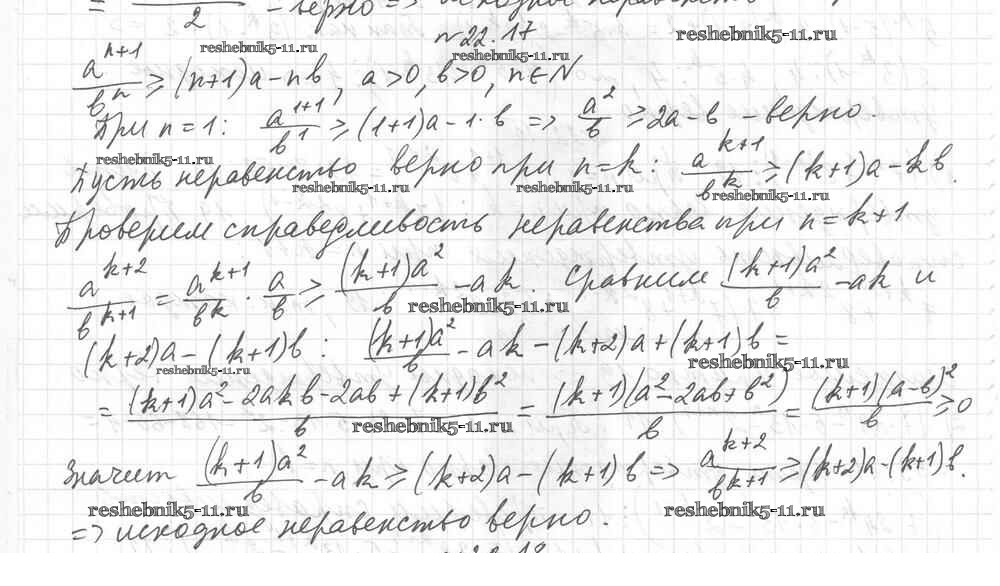 = 2 - верно => исходное неравенство
№22.17
reshebnik5-11.ru reshebnik5-11.ru reshebnik5-11.ru
a^{n+1}/b^n ≥ (n+1)a - nb, a>0, b>0, n∈N
При n=1: a^{1+1}/b^1 ≥ (1+1)a - 1·b => a^2/b ≥ 2a-b - верно.
reshebnik5-11.ru
Пусть неравенство верно при n=k: a^{k+1}/b^k ≥ (k+1)a - kb.
reshebnik5-11.ru reshebnik5-11.ru reshebnik5-11.ru
Проверим справедливость неравенства при n=k+1
a^{k+2}/b^{k+1} = a^{k+1}/b^k · a/b ≥ (k+1)a^2/b - ak. Сравним (k+1)a^2/b - ak и
reshebnik5-11.ru
(k+2)a - (k+1)b : (k+1)a^2/b - ak - (k+2)a + (k+1)b =
reshebnik5-11.ru reshebnik5-11.ru
= ((k+1)a^2 - 2akb - 2ab + (k+1)b^2)/b = (k+1)(a^2 - 2ab + b^2)/b = (k+1)(a-b)^2/b ≥ 0
reshebnik5-11.ru
Значит (k+1)a^2/b - ak ≥ (k+2)a - (k+1)b => a^{k+2}/b^{k+1} ≥ (k+2)a - (k+1)b.
reshebnik5-11.ru reshebnik5-11.ru
=> исходное неравенство верно.